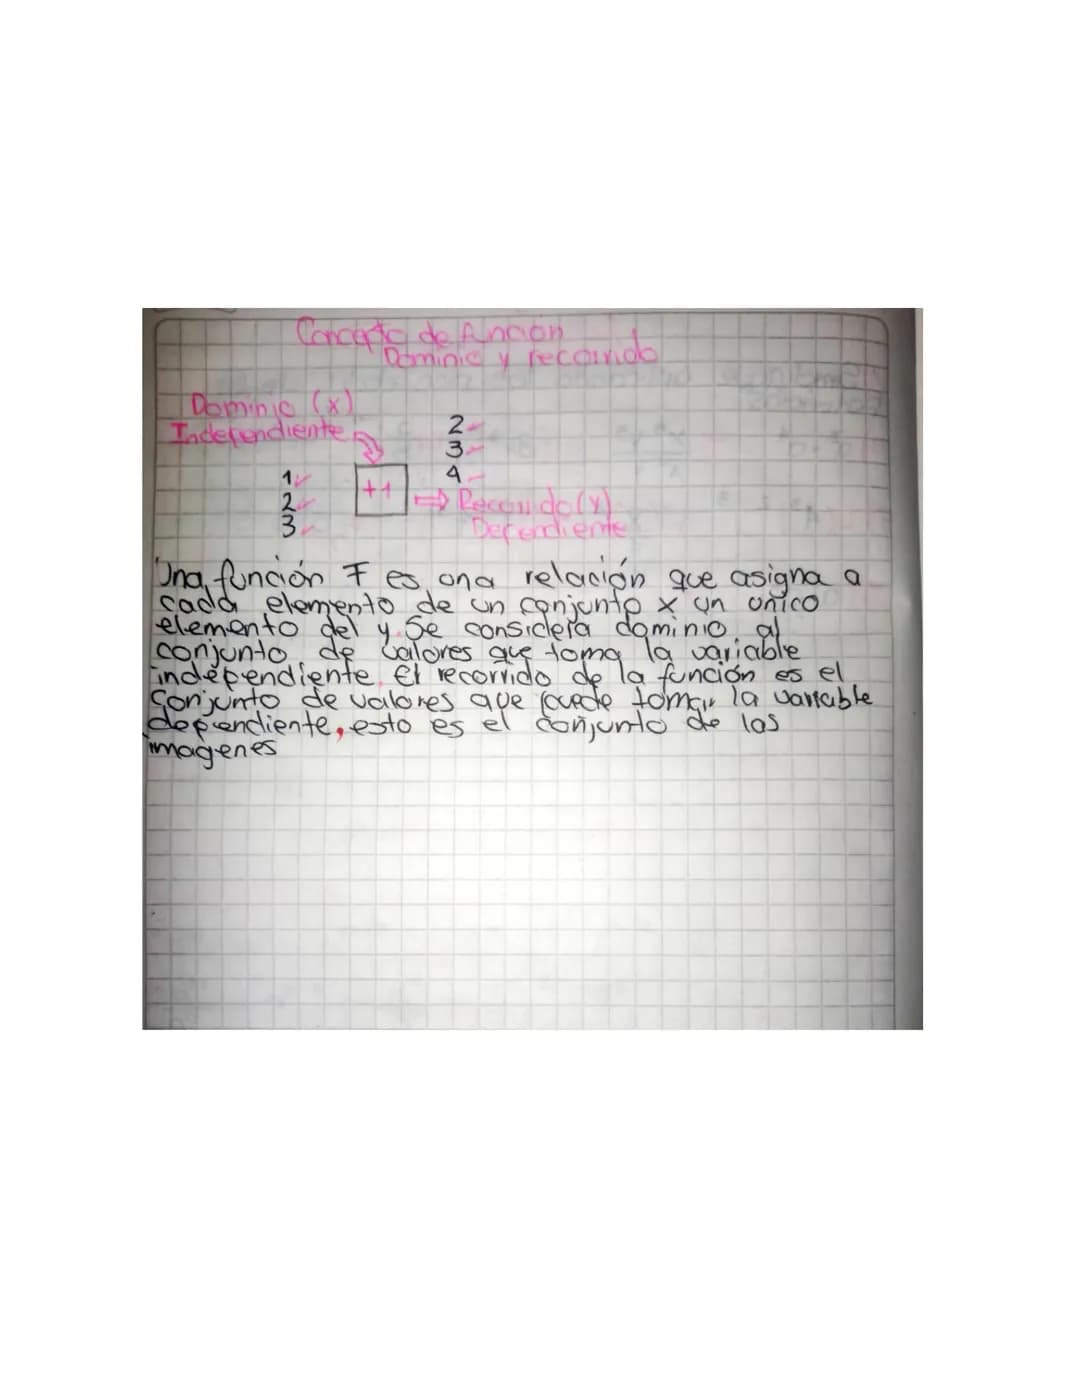 Concepto de función
Dominio y recorrido
Dominio (x)
Independiente
2
3
4
1
2
3
+1
Recorrido (y)
Dependiente
Una función F es una relación que asigna a
cada elemento de un conjunto x un único
elemento del y. Se considera dominio al
conjunto de valores que toma la variable
independiente. El recorrido de la función es el
conjunto de valores que puede tomar la variable
dependiente, esto es el conjunto de las
imagenes